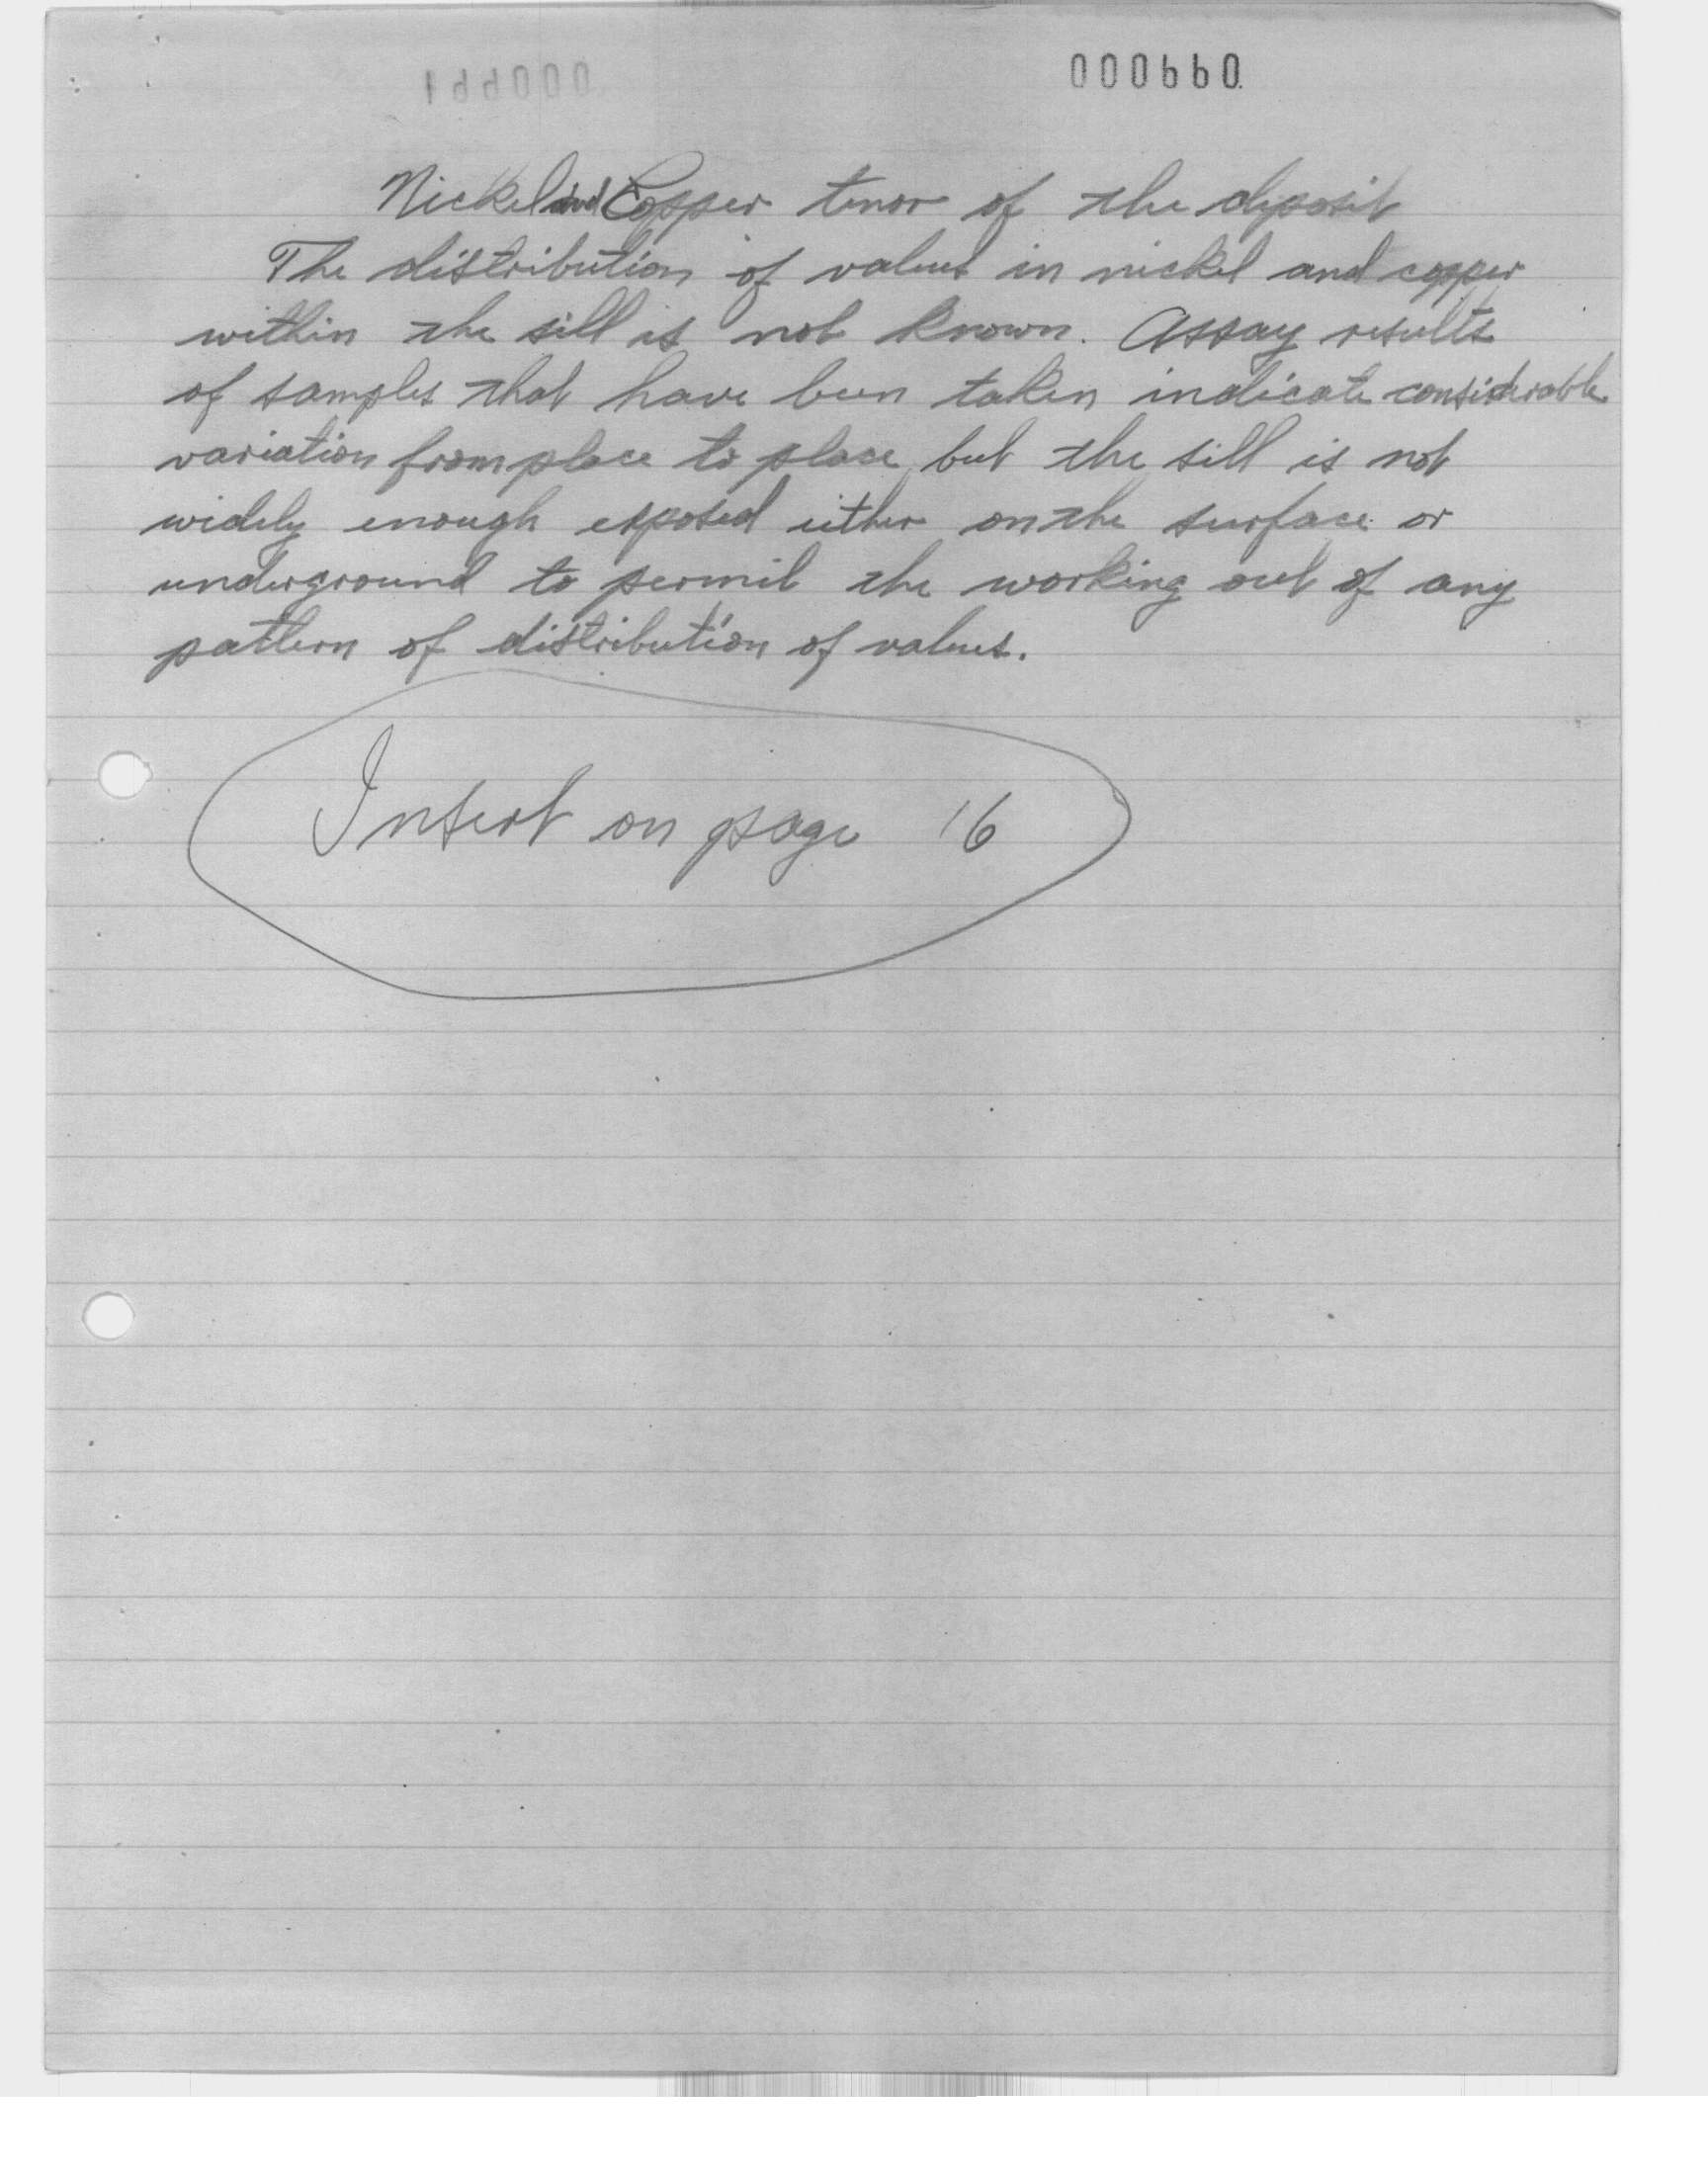 000660
Nickel and Copper tenor of the deposit
The distribution of values in nickel and copper
within the sill is not known. Assay results
of samples that have been taken indicate considerable
variation from place to place, but the sill is not
widely enough exposed either on the surface or
underground to permit the working out of any
pattern of distribution of values.
Insert on page 16